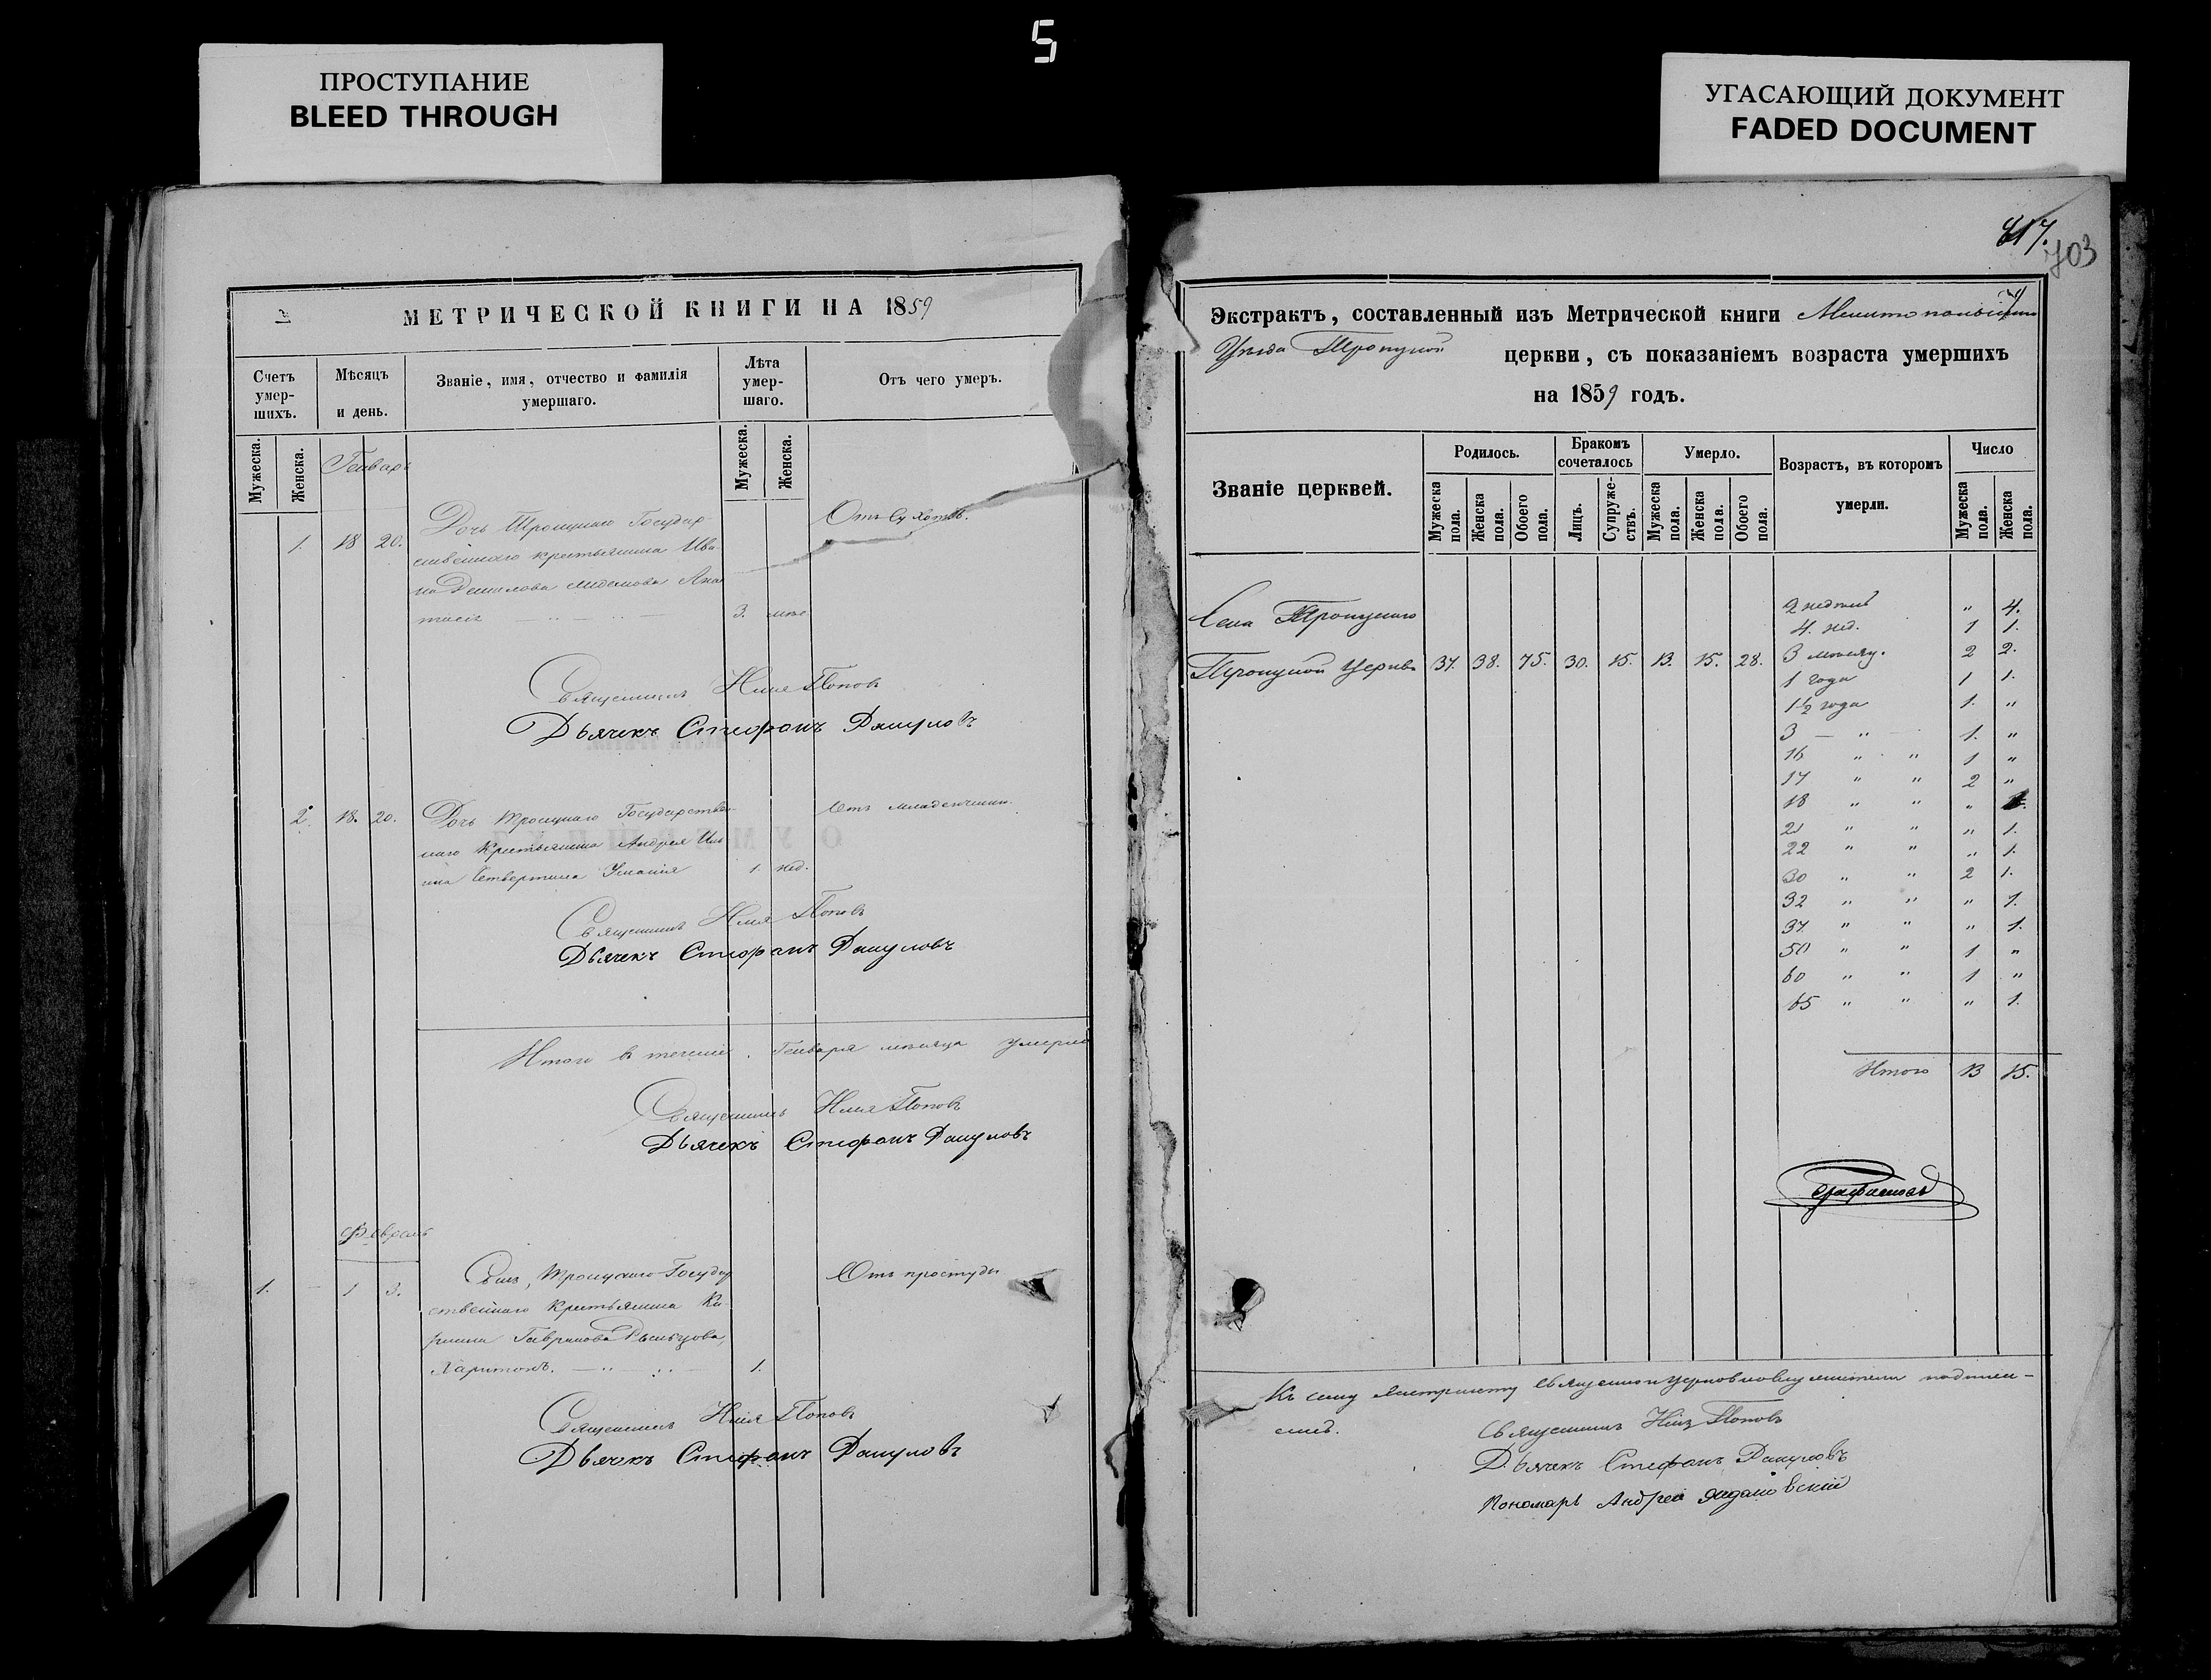 5
ПРОСТУПАНИЕ
BLEED THROUGH
УГАСАЮЩИЙ ДОКУМЕНТ
FADED DOCUMENT
МЕТРИЧЕСКОЙ КНИГИ НА 1859
Счетъ умер-шихъ.
Мѣсяцъ и день.
Званіе, имя, отчество и фамилія умершаго.
Лѣта умер-шаго.
Отъ чего умеръ.
Мужеска. Женска.
Мужеска. Женска.
Генварь
1. 18 20. Дочь Троицкаго Государ
Отъ сухотъ.
ственнаго крестьянина Ива-
на Данилова Ана
тасія 3.
Священникъ Илія Поповъ
Дьячекъ Стефанъ
2. 18. 20. Дочь Троицкаго Государствен-
Отъ младенческ
наго Крестьянина Андрея
1 нед.
Священникъ Илія Поповъ
Дьячекъ Стефанъ
Итого въ теченіе Генваря мѣсяца умерло
Священникъ Илія Поповъ
Дьячекъ Стефанъ
Февраль
1. 1 3. Сынъ, Троицкаго Государ
Отъ простуды
ственнаго Крестьянина Ки-
Гаврилова
Харитонъ. 1.
Священникъ Илія Поповъ
Дьячекъ Стефанъ
817.
703
Экстрактъ, составленный изъ Метрической книги Мелитопольскаго
Уѣзда Троицкой церкви, съ показаніемъ возраста умершихъ
на 1859 годъ.
Званіе церквей.
Родилось.
Бракомъ сочеталось
Умерло.
Возрастъ, въ которомъ умерли.
Число
Мужеска пола. Женска пола. Обоего пола. Лицъ. Супруже-ствъ. Мужеска пола. Женска пола. Обоего пола. Мужеска пола. Женска пола.
Села Троицкаго
Троицкой Церкви 37. 38. 75. 30. 15. 13. 15. 28.
2 недель " 4.
4. нед. 1 1.
3 мѣсяц. 2 2.
1 года 1 1.
1½ года 1. "
3 — " 1. "
16 " " 1 "
17 " " 2 "
18 " " "
21 " " " 1.
22 " " " 1.
30 " " 2 1.
32 " " " 1.
37 " " " 1.
50 " " 1 "
60 " " 1 "
65 " " " 1.
Итого 13 15.
Къ сему Экстракту Священноцерковнослужители подписа-
лись.
Священникъ Илія Поповъ
Дьячекъ Стефанъ
Пономарь Андрей